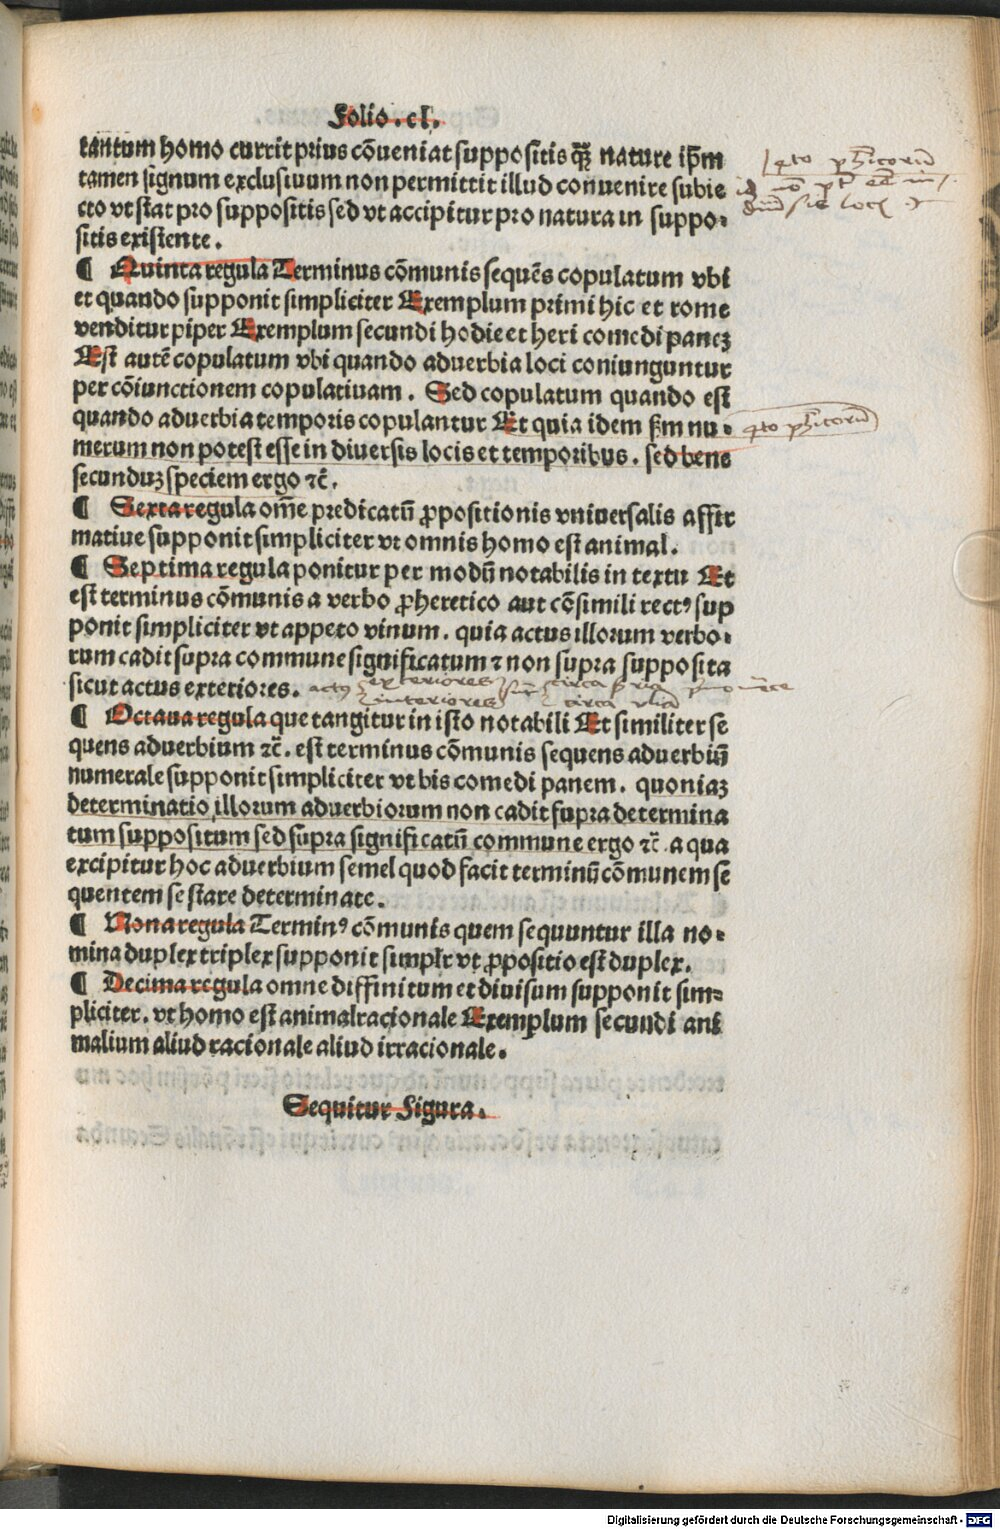 Folio.cl.
tantum homo currit prius cōueniat suppositis qꝫ nature ip̄m
tamen signum exclusiuum non permittit illud conuenire subie
cto vt stat pro suppositis sed vt accipitur pro natura in suppo⸗
sitis existente.
¶ Quinta regula Terminus cōmunis sequēs copulatum vbi
et quando supponit simpliciter Exemplum primi hic et rome
venditur piper Exemplum secundi hodie et heri comedi paneꝫ
Est autē copulatum vbi quando aduerbia loci coniunguntur
per cōiunctionem copulatiuam. Sed copulatum quando est
quando aduerbia temporis copulantur Et quia idem ẜm nu⸗
merum non potest esse in diuersis locis et temporibus. sed bene
secunduꝫ speciem ergo ⁊c̄.
¶ Sexta regula om̄e predicatū ꝓpositionis vniuersalis affir
matiue supponit simpliciter vt omnis homo est animal.
¶ Septima regula ponitur per modū notabilis in textu Et
est terminus cōmunis a verbo ꝓheretico aut cōsimili rectꝰ sup
ponit simpliciter vt appeto vinum. quia actus illorum verbo⸗
rum cadit supra commune significatum ⁊ non supra supposita
sicut actus exteriores.
actꝰ exteriores circa
interiores circa
¶ Octaua regula que tangitur in isto notabili Et similiter se
quens aduerbium ⁊c̄. est terminus cōmunis sequens aduerbiū
numerale supponit simpliciter vt bis comedi panem. quoniaꝫ
determinatio illorum aduerbiorum non cadit supra determina
tum suppositum sed supra significatū commune ergo ⁊c̄ a qua
excipitur hoc aduerbium semel quod facit terminū cōmunem se
quentem se stare determinate.
¶ Nona regula Terminꝰ cōmunis quem sequuntur illa no⸗
mina duplex triplex supponit simplr vt ꝓpositio est duplex.
¶ Decima regula omne diffinitum et diuisum supponit sim⸗
pliciter. vt homo est animal racionale Exemplum secundi ani
malium aliud racionale aliud irracionale.
Sequitur Figura.
Digitalisierung gefördert durch die Deutsche Forschungsgemeinschaft - DFG